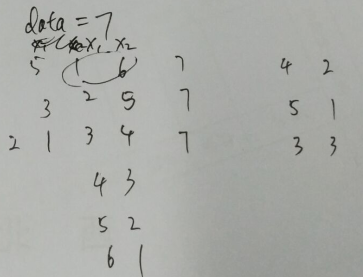 data = 7
x₁ x₂
5 1 6 7 4 2
3 2 5 7 5 1
2 1 3 4 7 3 3
4 3
5 2
6 1